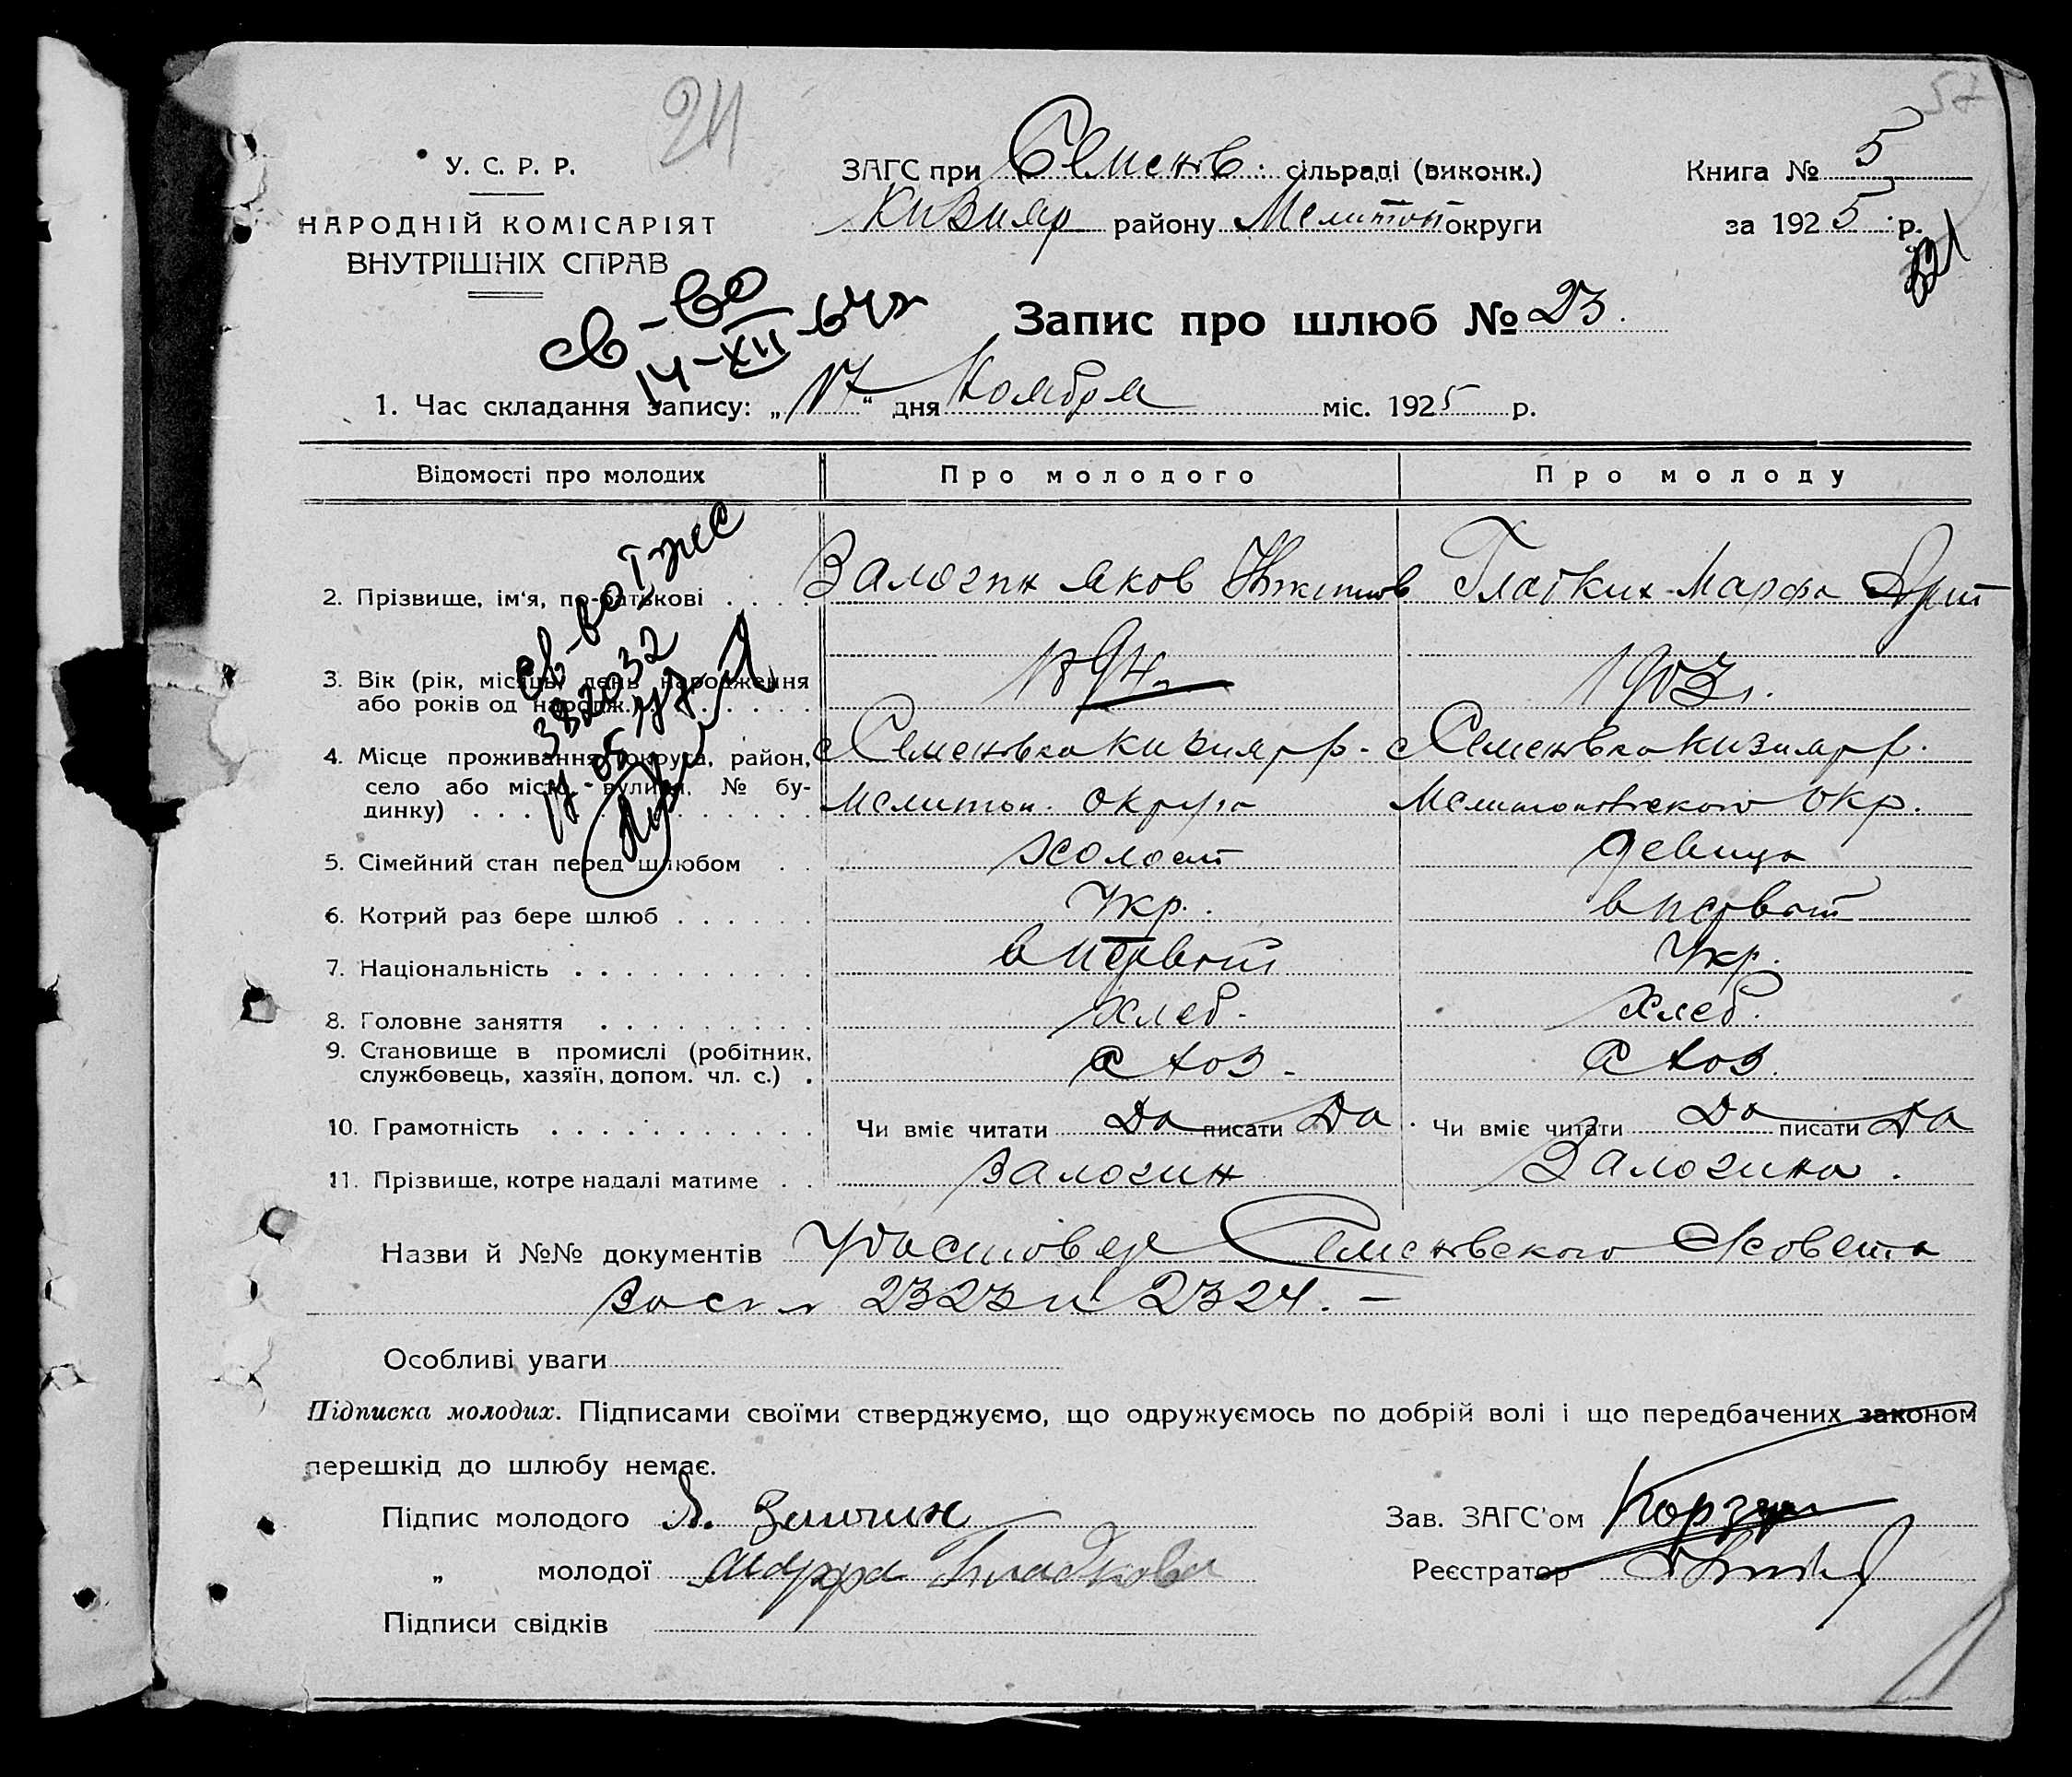 24
57
У. С. Р. Р.
НАРОДНІЙ КОМІСАРІЯТ
ВНУТРІШНІХ СПРАВ
ЗАГС при Семенов. сільраді (виконк.)
Кизияр району Мелитоп округи
Книга № 5
за 1925 р.
св-во
14-XII-64г
Запис про шлюб № 23.
1. Час складання запису: „17“ дня Ноября міс. 1925 р.
Відомості про молодих Про молодого Про молоду
2. Прізвище, ім‘я, по-батькові . . . . Залогин Яков Гладких Марфа
3. Вік (рік, місяць, день народження
або років од народж.) . . . . . . 1894г 1903г.
4. Місце проживання (округа, район, с Семеновка Кизияр р. с Семеновка Кизияр р.
село або місто, вулиця, № бу-
динку) . . . . . . . . . Мелитоп. округа Мелитопольского окр.
5. Сімейний стан перед шлюбом . . холост девица
6. Котрий раз бере шлюб . . . . . . Укр. в первый
7. Національність . . . . . . . . . . в первый Укр.
8. Головне заняття . . . . . . . . . хлеб. хлеб.
9. Становище в промислі (робітник,
службовець, хазяїн, допом. чл. с.) . с хоз. с хоз.
10. Грамотність . . . . . . . . . . . Чи вміє читати Да писати Да. Чи вміє читати Да писати Да
11. Прізвище, котре надалі матиме . . Залогин Залогина.
Назви й №№ документів Удостовер Семеновского Ссовета
за 2323 и 2324. –
Особливі уваги
Підписка молодих. Підписами своїми стверджуємо, що одружуємось по добрій волі і що передбачених законом
перешкід до шлюбу немає.
Підпис молодого Я. Залогин
„ молодої Марфа Гладкова
Підписи свідків
Зав. ЗАГС'ом
Реєстратор